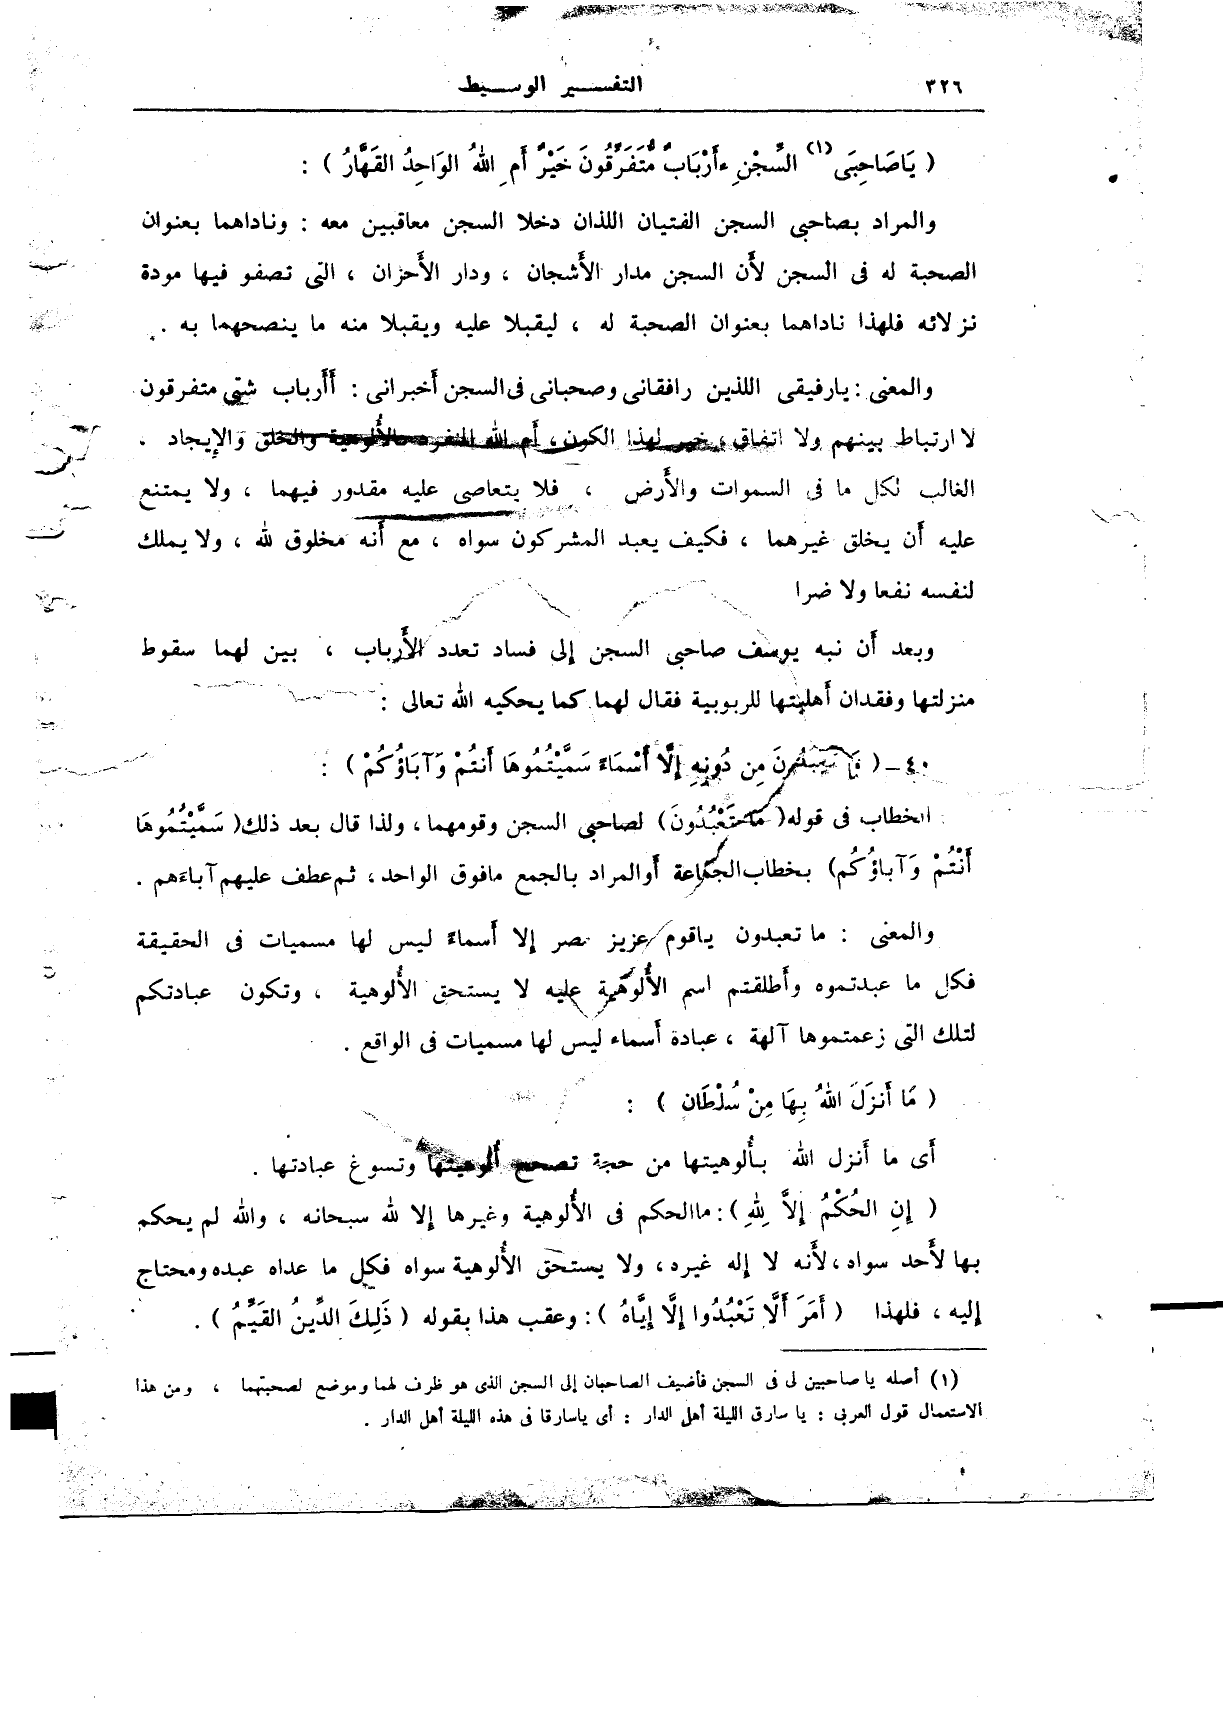 ٣٢٦
التفسير الوسيط
( يَاصَاحِبَى (١) السِّجْنِ ءأَرْبَابٌ مُّتَفَرِّقُونَ خَيْرٌ أَمِ اللهُ الوَاحِدُ القَهَّارُ ) :
والمراد بصاحبى السجن الفتيان اللذان دخلا السجن معاقبين معه : وناداهما بعنوان
الصحبة له فى السجن لأَن السجن مدار الأَشجان ، ودار الأَحزان ، التى تصفو فيها مودة
نزلائه فلهذا ناداهما بعنوان الصحبة له ، ليقبلا عليه ويقبلا منه ما ينصحهما به .
والمعنى : يارفيقى اللذين رافقانى وصحبانى فى السجن أَخبرانى : أَأَرباب شتى متفرقون
لا ارتباط بينهم ولا اتفاق ، خير لهذا الكون ، أَم الله المنفرد بالأُلوهية والخلق والإِيجاد .
الغالب لكل ما فى السموات والأَرض ، فلا يتعاصى عليه مقدور فيهما ، ولا يمتنع
عليه أَن يخلق غيرهما ، فكيف يعبد المشركون سواه ، مع أَنه مخلوق لله ، ولا يملك
لنفسه نفعا ولا ضرا
وبعد أَن نبه يوسف صاحبى السجن إلى فساد تعدد الأَرباب ، بين لهما سقوط
منزلتها وفقدان أَهليتها للربوبية فقال لهما كما يحكيه الله تعالى :
٤٠ـ ( مَا تَعْبُدُونَ مِن دُونِهِ إِلَّا أَسْمَاءً سَمَّيْتُمُوهَا أَنتُمْ وَآبَاؤُكُمْ ) :
الخطاب فى قوله ( مَا تَعْبُدُونَ ) لصاحبى السجن وقومهما ، ولذا قال بعد ذلك ( سَمَّيْتُمُوهَا
أَنْتُمْ وَآباؤُكُم ) بخطاب الجماعة أَوالمراد بالجمع مافوق الواحد ، ثم عطف عليهم آباءَهم .
والمعنى : ما تعبدون ياقوم عزيز مصر إلا أَسماءً ليس لها مسميات فى الحقيقة
فكل ما عبدتموه وأَطلقتم اسم الأُلوهية عليه لا يستحق الأُلوهية ، وتكون عبادتكم
لتلك التى زعمتموها آلهة ، عبادة أَسماء ليس لها مسميات فى الواقع .
( مَّا أَنزَلَ اللهُ بِهَا مِنْ سُلْطَان ) :
أَى ما أَنزل الله بأُلوهيتها من حجة تصحح أُلوهيتها وتسوغ عبادتها .
( إِنِ الحُكْمُ إِلاَّ لِلهِ ) : ماالحكم فى الأُلوهية وغيرها إلا لله سبحانه ، والله لم يحكم
بها لأَحد سواه ، لأَنه لا إله غيره ، ولا يستحق الأُلوهية سواه فكل ما عداه عبده ومحتاج
إليه ، فلهذا ( أَمَرَ أَلَّا تَعْبُدُوا إِلَّا إِيَّاهُ ) : وعقب هذا بقوله ( ذَلِكَ الدِّينُ القَيِّمُ ) .
(١) أصله ياصاحبين لى فى السجن فأضيف الصاحبان إلى السجن الذى هو ظرف لهما وموضع لصحبتهما ، ومن هذا
الاستعمال قول العربى : يا سارق الليلة أهل الدار : أى ياسارقا فى هذه الليلة أهل الدار .